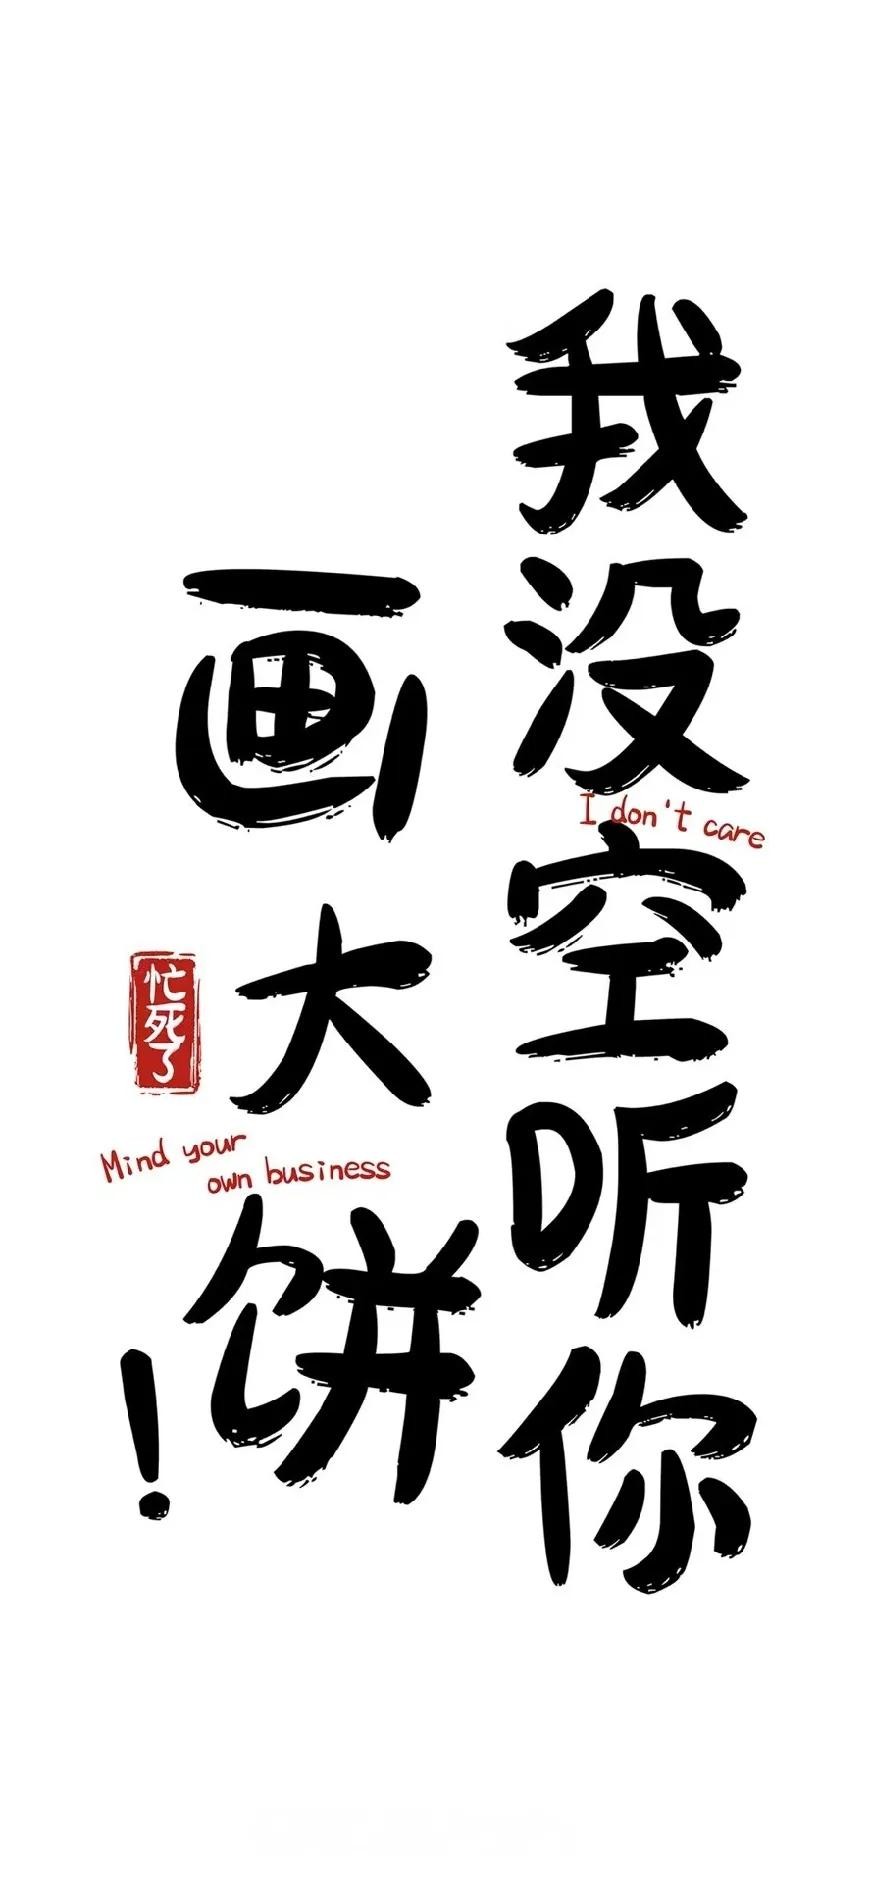 我没空听你
I don't care
画大饼!
忙死了
Mind your
own business